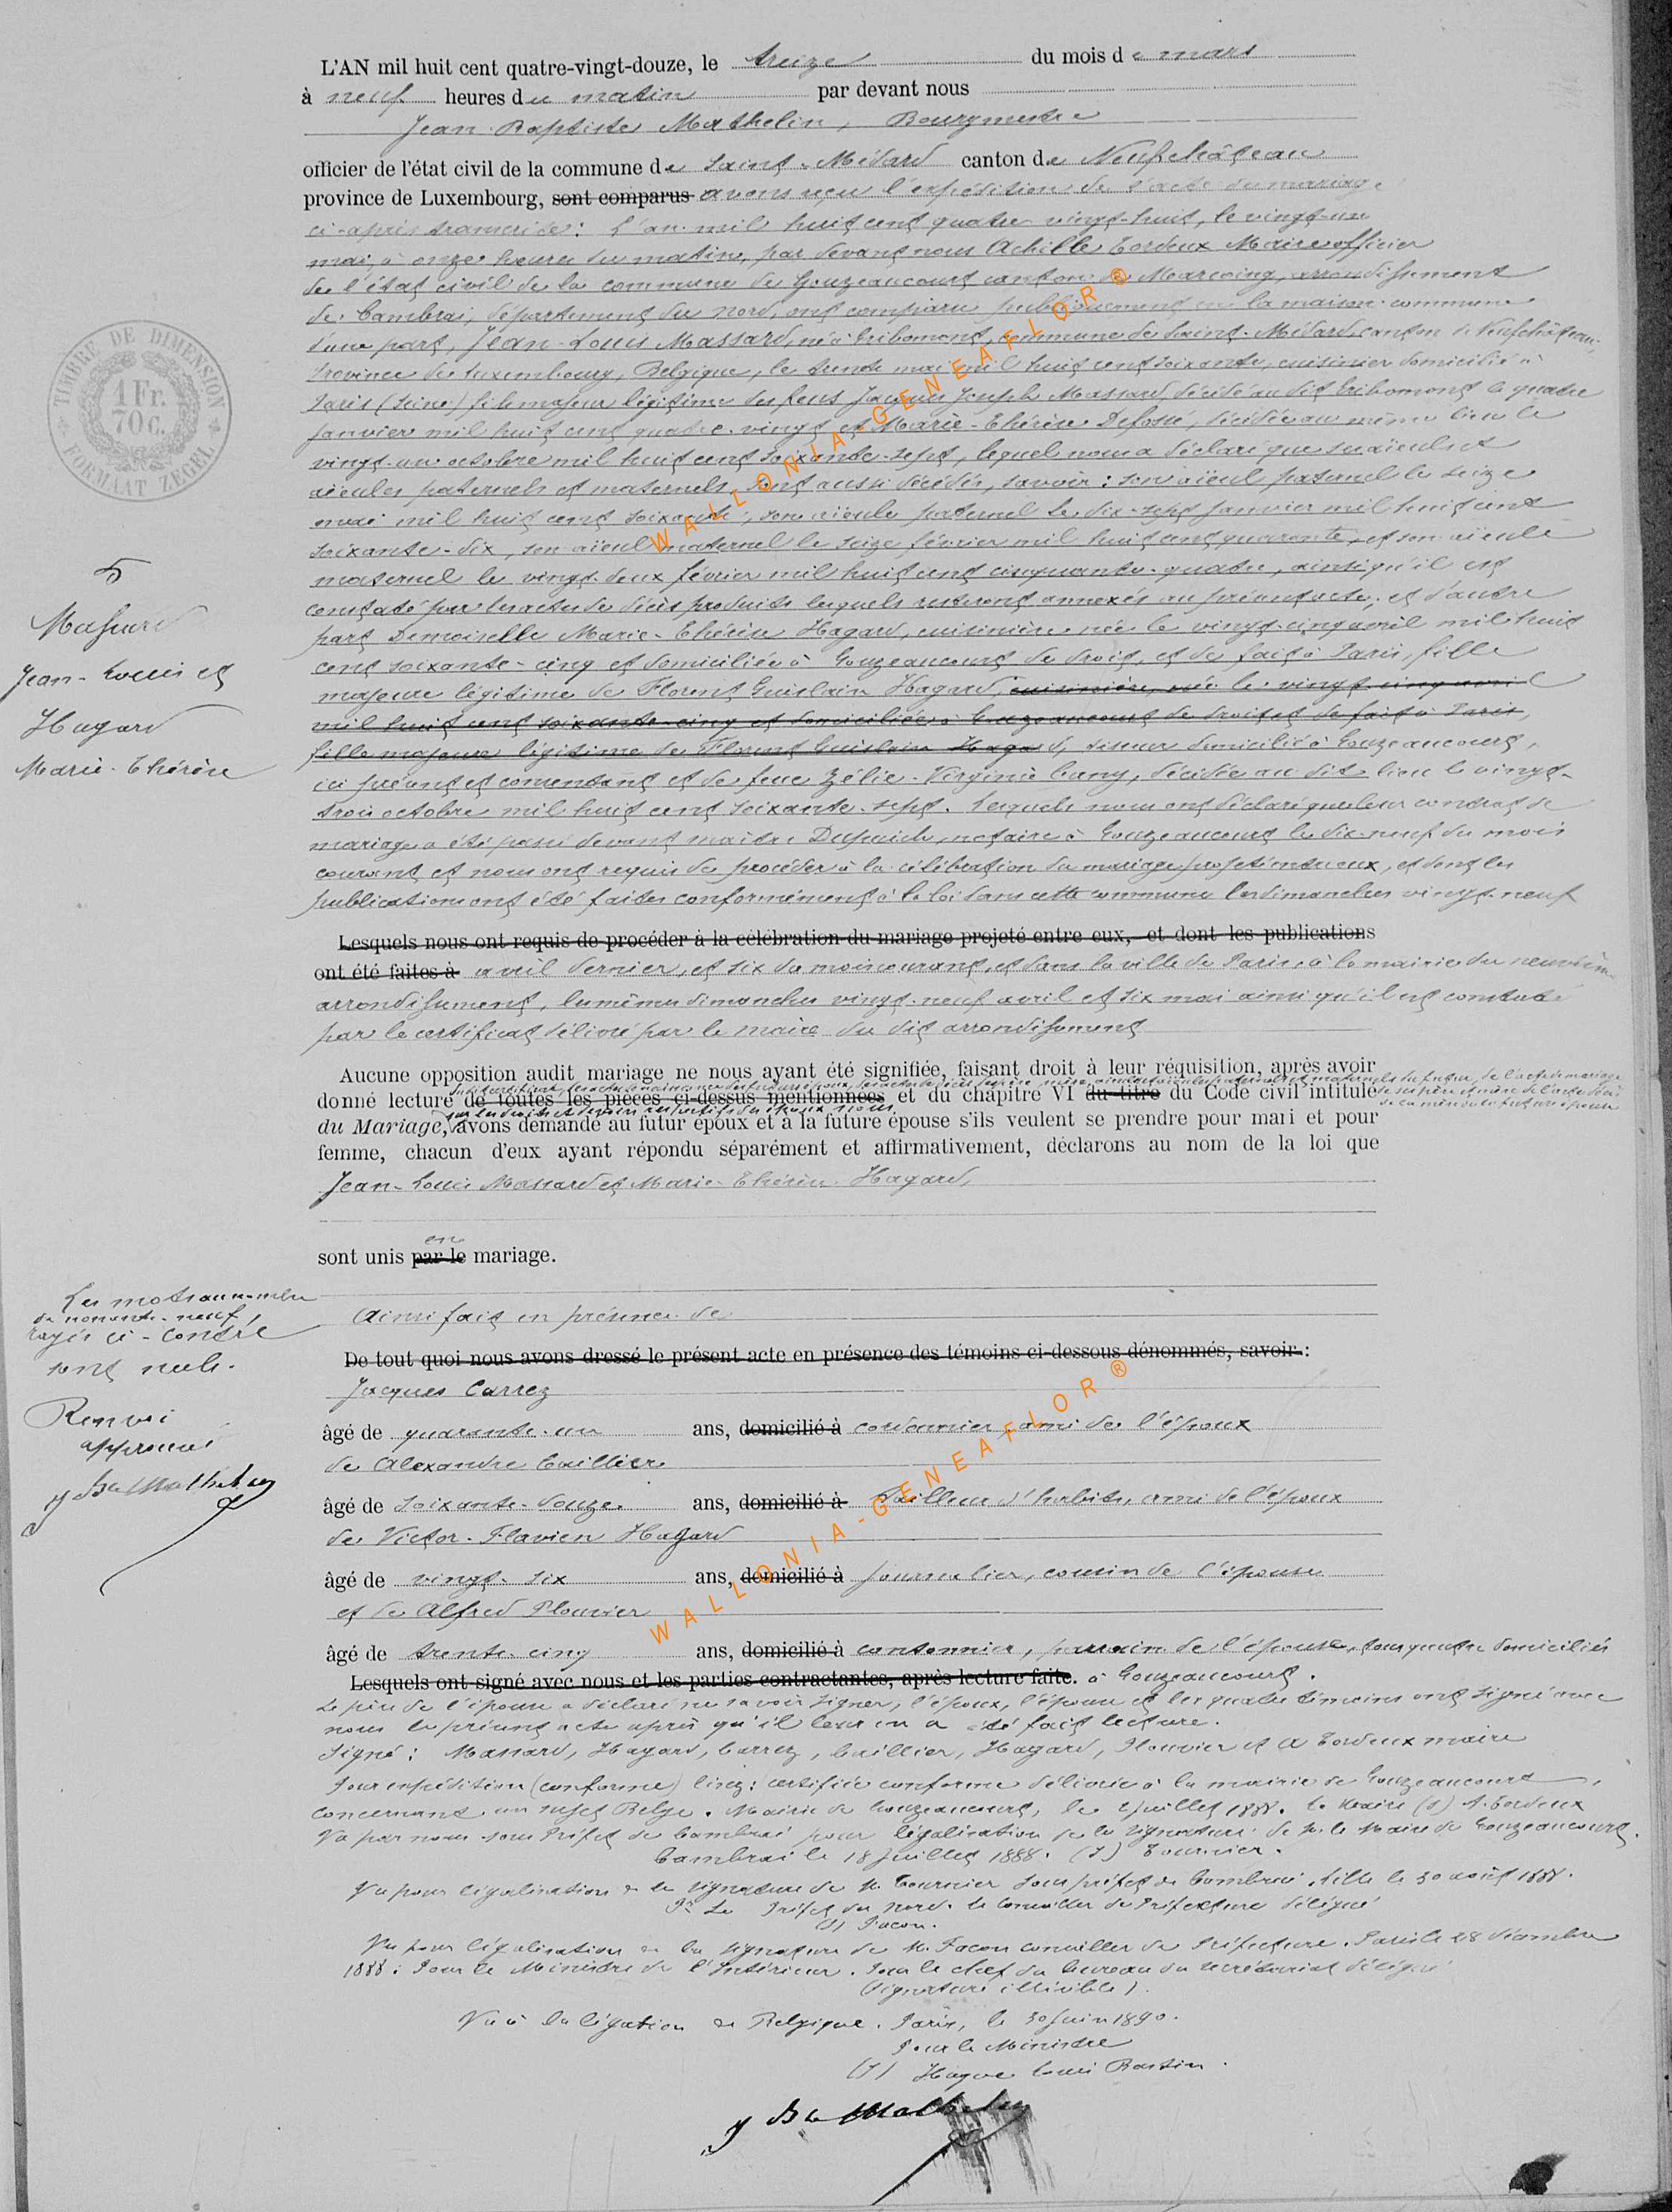 L'AN mil huit cent quatre-vingt-douze, le treize du mois de mars
à neuf heures du matin par devant nous
Jean Baptiste Mathelin, Bourgmestre
officier de l'état civil de la commune de Saint-Médard canton de Neufchâteau
province de Luxembourg, sont comparus avons reçu l'expédition de l'acte de mariage
ci-après transcrite : L'an mil huit cent quatre-vingt-huit, le vingt-un
mai, à onze heures du matin, par devant nous Achille Tordeux Maire officier
de l'état civil de la commune de Gouzeaucourt canton de Marcoing, arrondissement
de Cambrai, département du Nord, ont comparu publiquement en la maison commune
d'une part, Jean-Louis Massard, né à Gribomont, commune de Saint-Médard, canton de Neufchâteau,
Province du Luxembourg, Belgique, le trente mai mil huit cent soixante, cuisinier domicilié à
Paris (Seine) fils majeur légitime des feus Jacques Joseph Massard, décédé au dit Gribomont le quatre
janvier mil huit cent quatre-vingt et Marie-Thérèse Defossé, décédée au même lieu le
vingt-un octobre mil huit cent soixante-sept, lequel nous a déclaré que ses aïeuls et
aïeules paternels et maternels, sont aussi décédés, savoir : son aïeul paternel le seize
mai mil huit cent soixante, son aïeule paternel le dix-sept janvier mil huit cent
soixante-dix, son aïeul maternel le seize février mil huit cent quarante, et son aïeule
maternel le vingt-deux février mil huit cent cinquante-quatre, ainsi qu'il est
constaté par les actes de décès produits lesquels resteront annexés au présent acte, et d'autre
part Demoiselle Marie-Thérèse Hagard, cuisinière née le vingt-cinq avril mil huit
cent soixante-cinq et domiciliée à Gouzeaucourt de droit, et de fait à Paris, fille
majeure légitime de Florent Guislain Hagard, cuisinière, née le vingt-cinq avril
mil huit cent soixante-cinq et domiciliée à Gouzeaucourt de droit et de fait à Paris,
fille majeure légitime de Florent Guislain Hagard, tisseur domicilié à Gouzeaucourt,
ici présent et consentant et de feue Zélie-Virginie Cany, décédée au dit lieu le vingt-
trois octobre mil huit cent soixante-sept. Lesquels nous ont déclaré que leur contrat de
mariage a été passé devant maître notaire à Gouzeaucourt le dix-neuf du mois
courant et nous ont requis de procéder à la célébration du mariage projeté entre eux, et dont les
publications ont été faites conformément à la loi dans cette commune les dimanches vingt-neuf
Lesquels nous ont requis de procéder à la célébration du mariage projeté entre eux, et dont les publications
ont été faites à avril dernier, et six du mois courant, et dans la ville de Paris, à la mairie du neuvième
arrondissement, les mêmes dimanches vingt-neuf avril et six mai ainsi qu'il est constaté
par le certificat délivré par le maire du dit arrondissement
Aucune opposition audit mariage ne nous ayant été signifiée, faisant droit à leur réquisition, après avoir
donné lecture de toutes les pièces ci-dessus mentionnées et du chapitre VI du titre du Code civil intitulé
du Mariage, sur les droits et devoirs respectifs des époux nous avons demandé au futur époux et à la future épouse s'ils veulent se prendre pour mari et pour
femme, chacun d'eux ayant répondu séparément et affirmativement, déclarons au nom de la loi que
Jean-Louis Massard et Marie-Thérèse Hagard,
sont unis par le en mariage.
Ainsi fait en présence de
De tout quoi nous avons dressé le présent acte en présence des témoins ci-dessous dénommés, savoir :
Jacques Carrez
âgé de quarante-un ans, domicilié à cordonnier, ami de l'époux
de Alexandre Caillier
âgé de soixante-douze ans, domicilié à Tailleur d'habits, ami de l'époux
de Victor-Flavien Hagard
âgé de vingt-six ans, domicilié à journalier, cousin de l'épouse
et de Alfred Plouvier
âgé de trente-cinq ans, domicilié à cantonnier, parrain de l'épouse, tous quatre domiciliés
Lesquels ont signé avec nous et les parties contractantes, après lecture faite. à Gouzeaucourt.
Le père de l'épouse a déclaré ne savoir signer, l'époux, l'épouse et les quatre témoins ont signé avec
nous le présent acte après qu'il leur en a été fait lecture.
Signé : Massard, Hagard, Carrez, Caillier, Hagard, Plouvier et A Tordeux maire
Pour expédition (conforme) certifiée conforme délivrée à la mairie de Gouzeaucourt,
concernant un sujet Belge. Mairie de Gouzeaucourt, le 2 juillet 1888. Le Maire (s) A. Tordeux
Vu par nous sous Préfet de Cambrai pour légalisation de la signature de M. le Maire de Gouzeaucourt.
Cambrai le 18 juillet 1888. (s) Tournier.
Vu pour légalisation de la signature de M. Tournier sous préfet de Cambrai. Lille le 30 août 1888.
Pr Le Préfet du Nord. Le Conseiller de Préfecture délégué
(s) Facon.
Vu pour légalisation de la signature de M. Facon conseiller de Préfecture. Paris le 28 décembre
1888. Pour le Ministre de l'Intérieur. Pour le chef du bureau du secrétariat délégué
(signature illisible).
Vu à la légation de Belgique. Paris, le 30 juin 1890.
Pour le Ministre
(s) Louis Bastin.
J Bte Mathelin
5
Massard
Jean-Louis et
Hagard
Marie-Thérèse
Les mots au nombre
de nonante-neuf,
rayés ci-contre
sont nuls.
Renvoi
approuvé
J Bte Mathelin
TIMBRE DE DIMENSION
1 Fr.
70 C.
FORMAAT ZEGEL
WALLONIA-GENEAFLOR®
WALLONIA-GENEAFLOR®